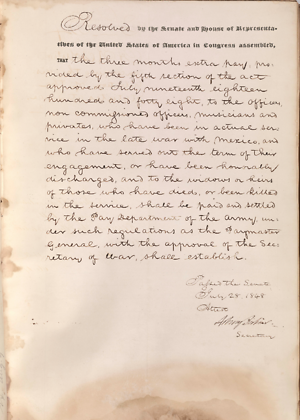 Resolved by the Senate and House of Representa-
tives of the United States of America in Congress assembled,
THAT the three months extra pay, pro-
vided by the fifth section of the act
approved July nineteenth eighteen
hundred and forty eight, to the officers,
non commissioned officers, musicians and
privates, who have been in actual ser-
vice in the late war with Mexico, and
who have served out the term of their
engagement, or have been honorably
discharged, and to the widows or heirs
of those who have died, or been killed
in the service, shall be paid and settled
by the Pay Department of the Army, un-
der such regulations as the Paymaster
General, with the approval of the Sec-
retary of War, shall establish.
Passed the Senate
July 28, 1848
Attest
Secretary